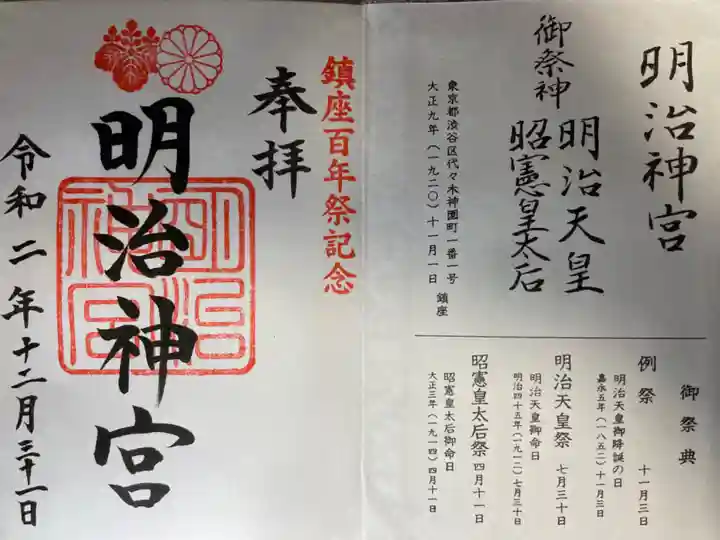 明治神宮
御祭神
明治天皇
昭憲皇太后
東京都渋谷区代々木神園町一番一号
大正九年(一九二〇)十一月一日 鎮座
御祭典
例祭 十一月三日
明治天皇御降誕の日
嘉永五年(一八五二)十一月三日
明治天皇祭 七月三十日
明治天皇御命日
明治四十五年(一九一二)七月三十日
昭憲皇太后祭 四月十一日
昭憲皇太后御命日
大正三年(一九一四)四月十一日
鎮座百年祭記念
奉拝
明治神宮
明治神宮
令和二年十二月三十一日